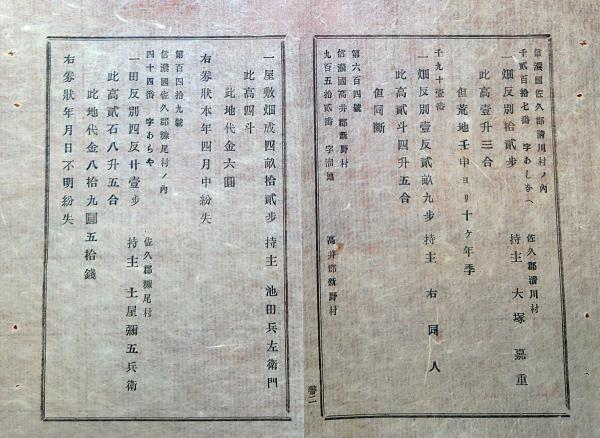 信濃國佐久郡清川村ノ內
千貳百拾七番 字あしなへ 佐久郡清川村
一畑反別拾貳步 持主 大塚嘉重
此高壹升三合
但荒地壬申ヨリ十ヶ年季
千九十壹番
一畑反別壹反貳畝九步 持主 右同人
此高貳斗四升五合
但同斷
第六百四號
信濃國高井郡㽵野村
九百五拾貳番 字溜池 高井郡㽵野村
一屋敷畑成四畝拾貳步 持主 池田兵左衛門
此高四斗
此地代金六圓
右劵狀本年四月中紛失
第百四拾九號
信濃國佐久郡糠尾村ノ內
四十四番 字あらや 佐久郡糠尾村
一田反別四反廿壹步 持主 土屋彌五兵衛
此高貳石八升五合
此地代金八拾九圓五拾錢
右劵狀年月日不明紛失